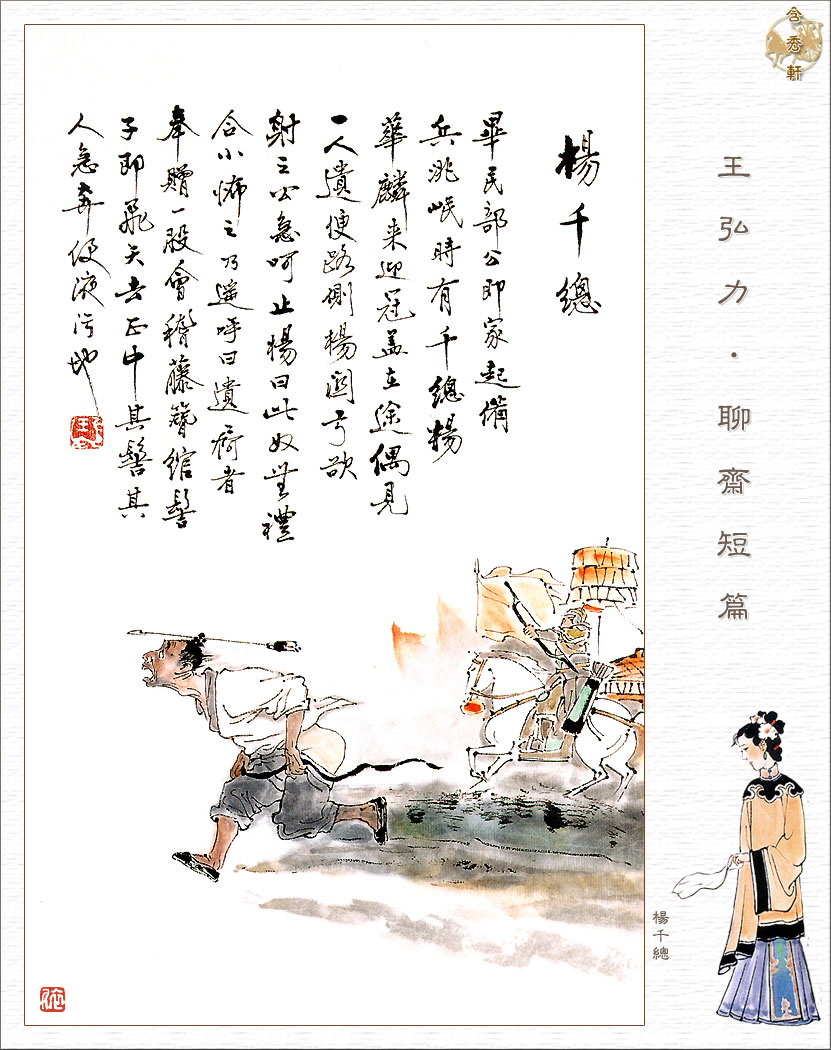 楊千總
畢民部公即家起備
兵洮岷時有千總楊
華麟来迎冠蓋在途偶見
一人遺便路側楊関弓欲
射之公急呵止楊曰此奴無禮
合小怖之乃遥呼曰遺屙者
奉贈一股會稽藤簪綰髻
子即飛矢去正中其髻其
人急奔便液污地
含秀軒
王弘力·聊齋短篇
楊千總